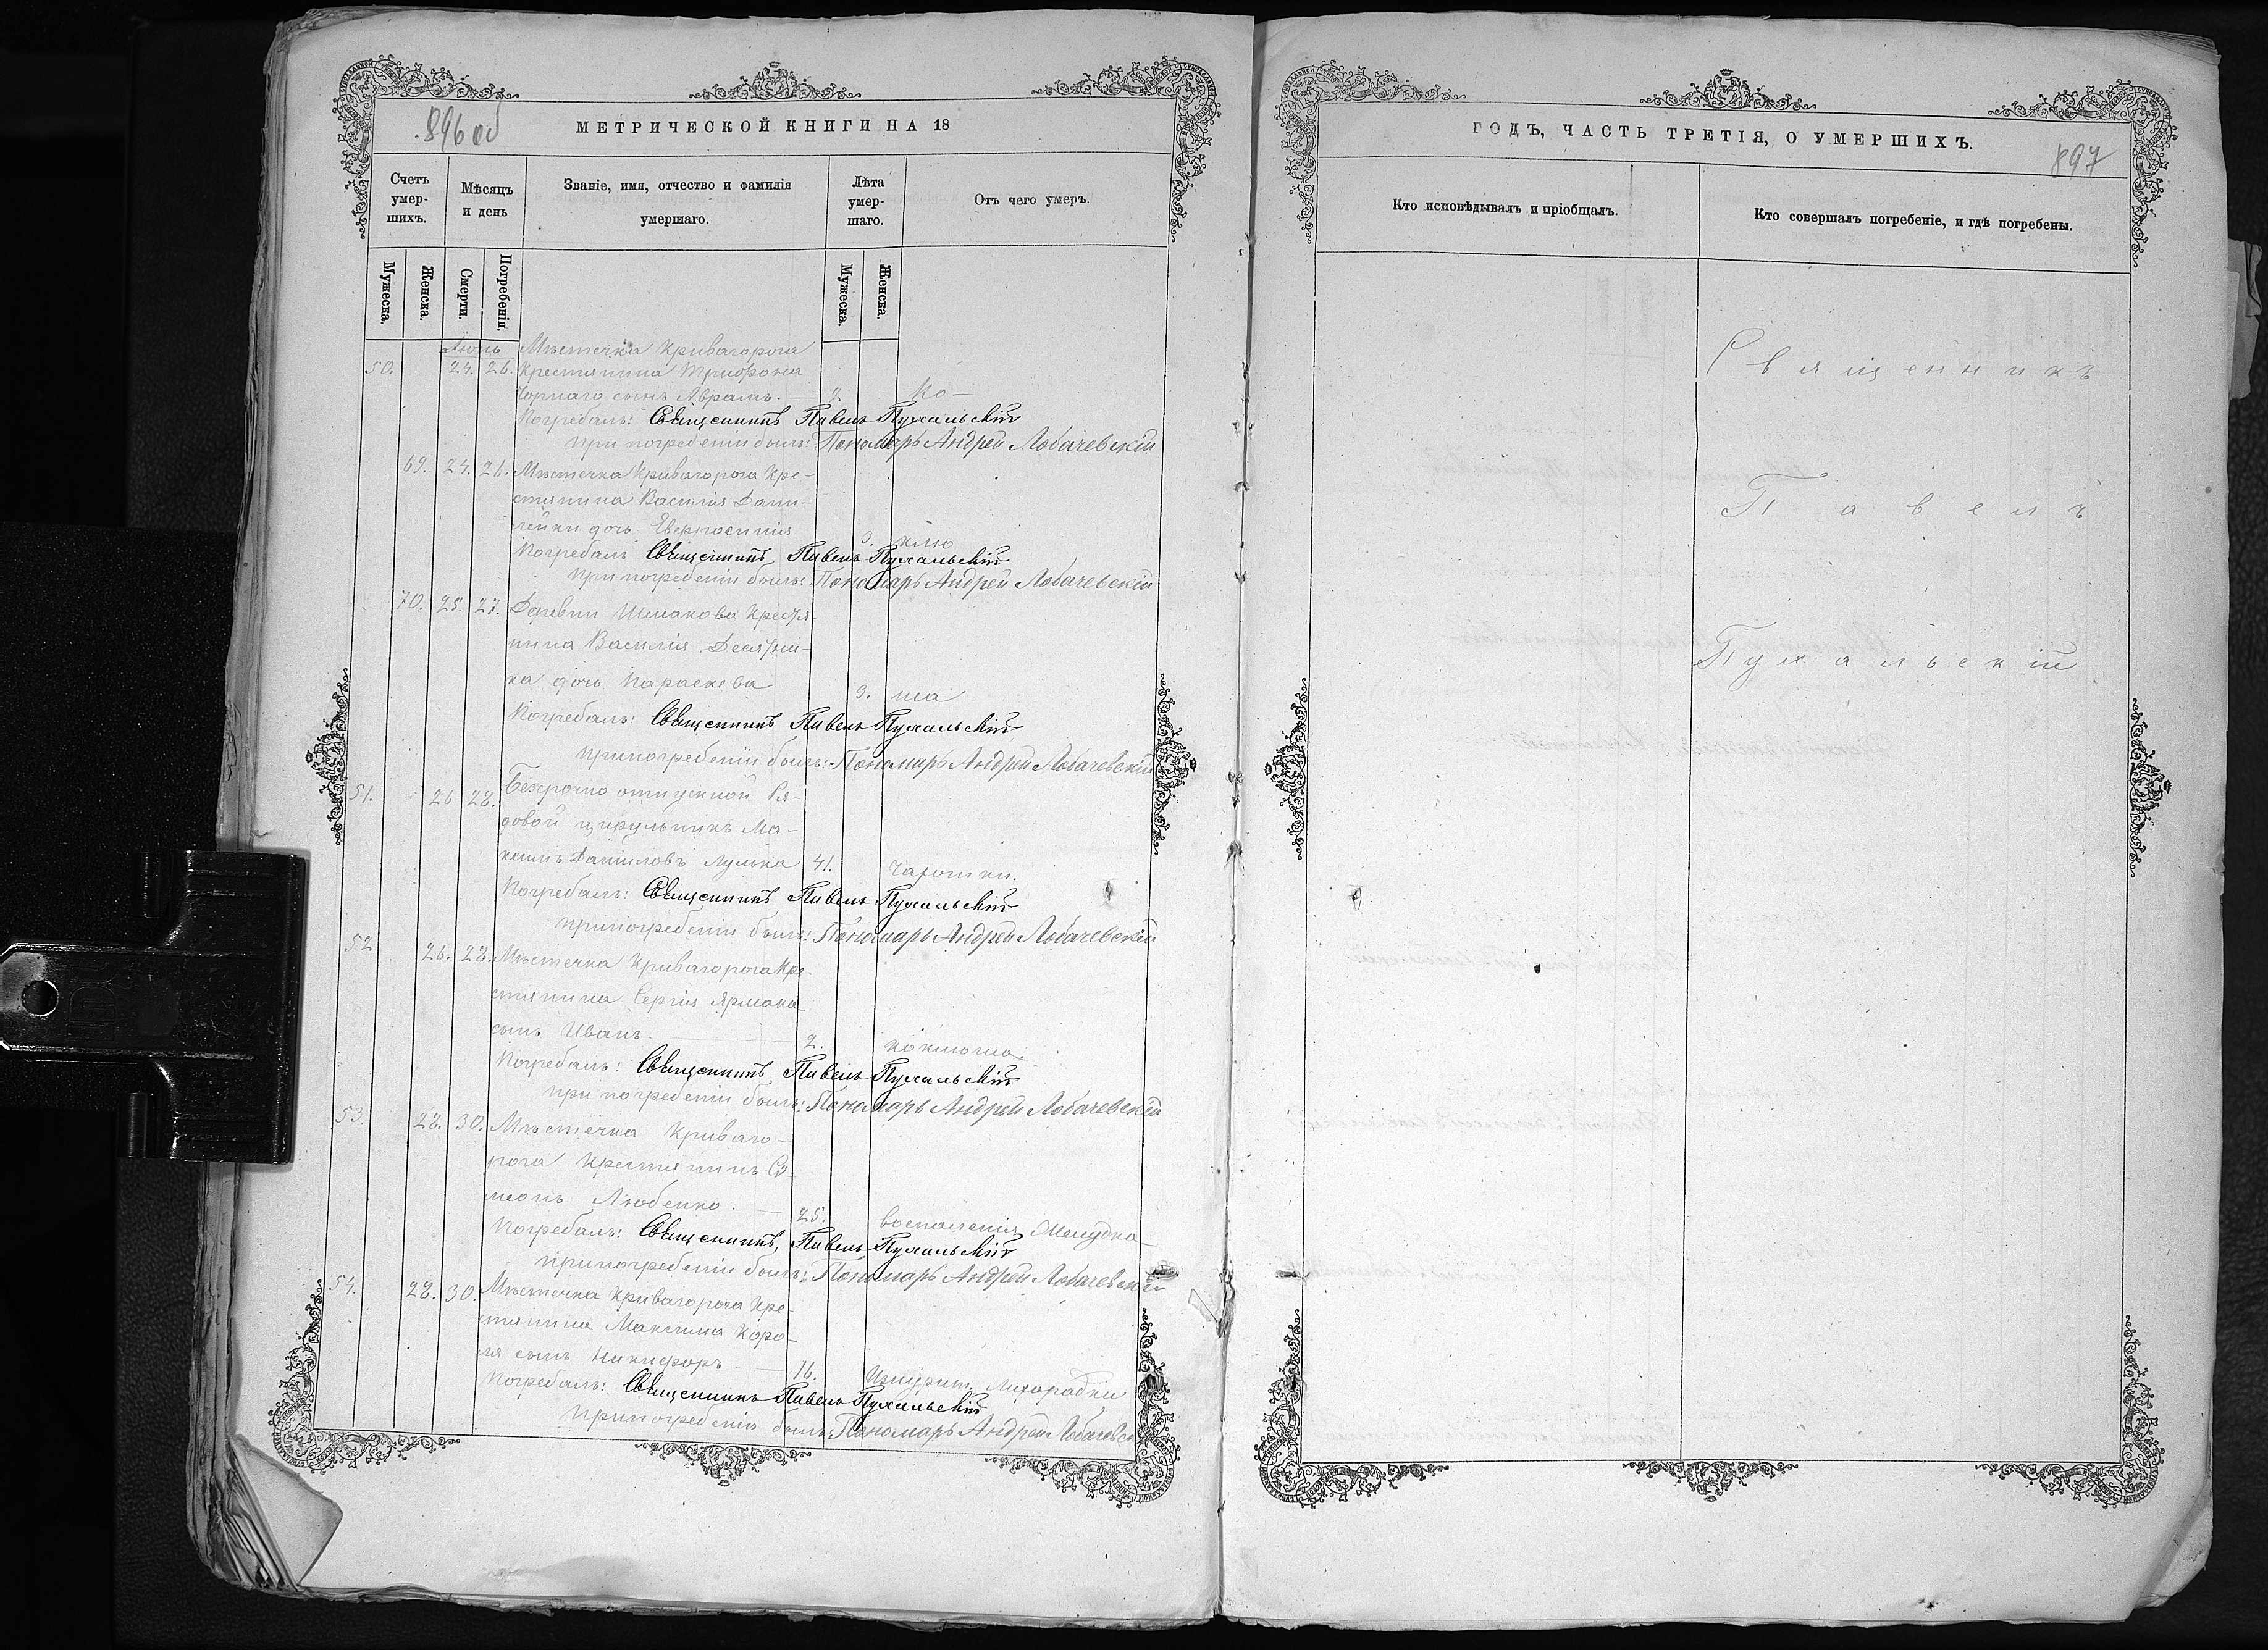 896 об
МЕТРИЧЕСКОЙ КНИГИ НА 18
Счетъ умер-шихъ.
Мѣсяцъ и день
Званіе, имя, отчество и фамилія умершаго.
Лѣта умер-шаго.
Отъ чего умеръ.
Мужеска.
Женска.
Смерти.
Погребенія.
Мужеска.
Женска.
Мѣстечка Кривагорога
50. 24. 26. Крестянина Трифона
Чорнаго сынъ Аврамъ. — 2 Ко-
Погребалъ: Священникъ Павелъ Пухальскій
При погребеніи былъ: Пономарь Андрей Лобачевскій
69. 24. 26. Мѣстечка Кривагорога Кре-
стянина Василія Дани-
лейки дочь Евфросинія
3. клю
Погребалъ Священникъ Павелъ Пухальскій
При погребеніи былъ: Пономарь Андрей Лобачевскій
70. 25. 27. Деревни Шмакова Крестя-
нина Василія Десятни-
ка дочь Параскева 3. ша
Погребалъ: Священникъ Павелъ Пухальскій
При погребеніи былъ: Пономарь Андрей Лобачевскій
51. 26 28. Безсрочно отпускной Ря-
довой цирульникъ Ма-
ксимъ Даниловъ Лулька 41. Чахотки.
Погребалъ: Священникъ Павелъ Пухальскій
При погребеніи былъ: Пономарь Андрей Лобачевскій
52 26. 28. Мѣстечка Кривагорога Кре-
стянина Сергія Ярмака
сынъ Иванъ 2. коклюша.
Погребалъ: Священникъ Павелъ Пухальскій
При погребеніи былъ: Пономарь Андрей Лобачевскій
53. 28. 30. Мѣстечка Криваго-
рога Крестянинъ Си-
меонъ Любенко. — 25. воспаленія Желудка
Погребалъ: Священникъ, Павелъ Пухальскій
При погребеніи былъ: Пономарь Андрей Лобачевскій
54. 28. 30. Мѣстечка Кривагорога Кре-
стянина Максима Коро-
ля сынъ Никифоръ — 16. Лихорадки
Погребалъ: Священникъ Павелъ Пухальскій
При погребеніи былъ: Пономарь Андрей Лобачевск
ГОДЪ, ЧАСТЬ ТРЕТІЯ, О УМЕРШИХЪ.
897
Кто исповѣдывалъ и пріобщалъ.
Кто совершалъ погребеніе, и гдѣ погребены.
Священникъ
Павелъ
Пухальскій